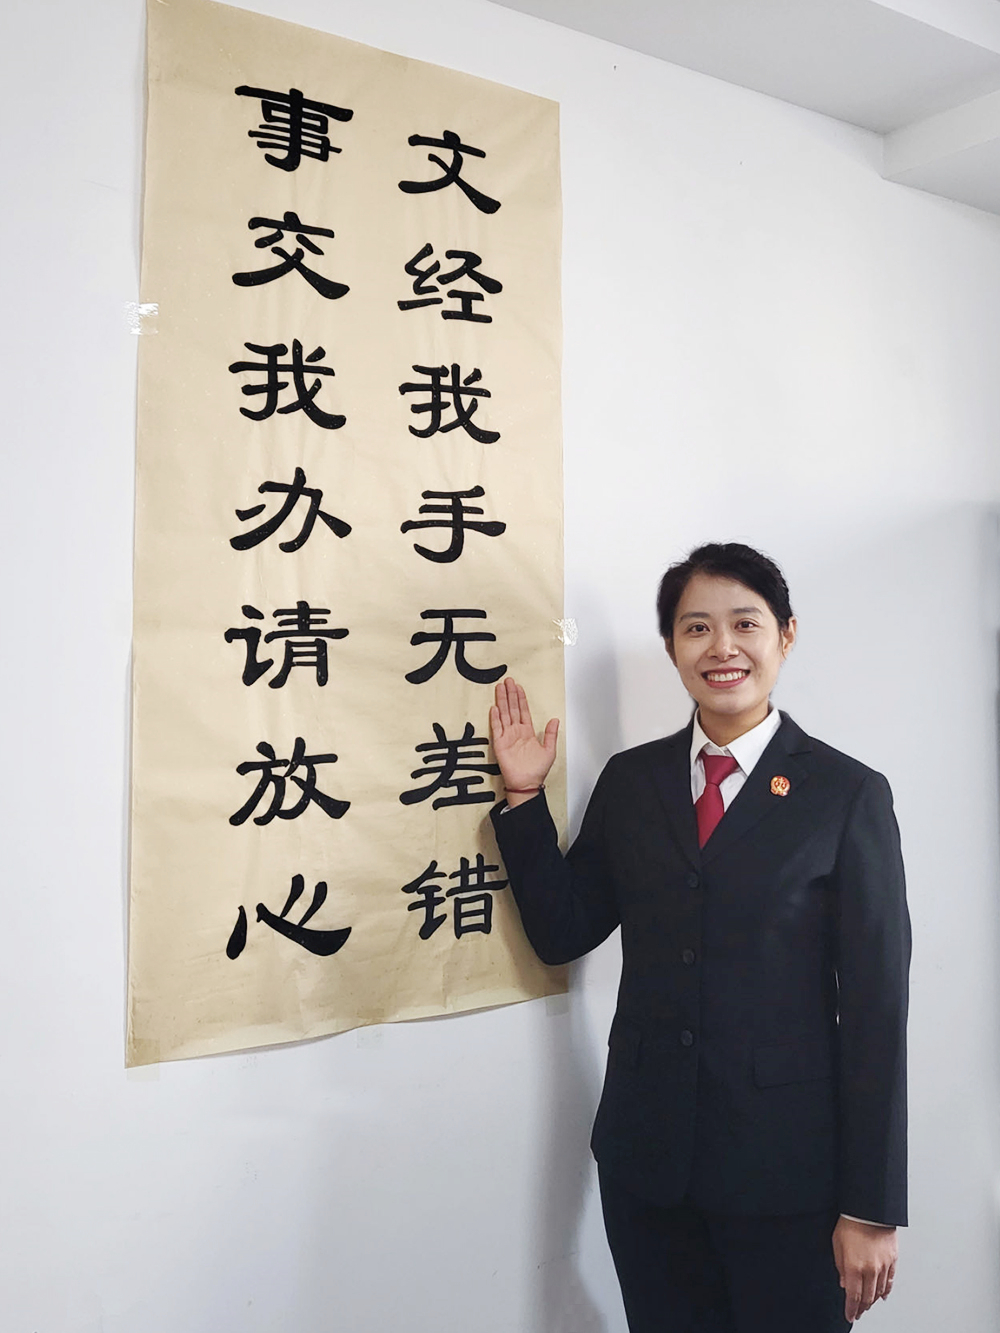 文经我手无差错
事交我办请放心